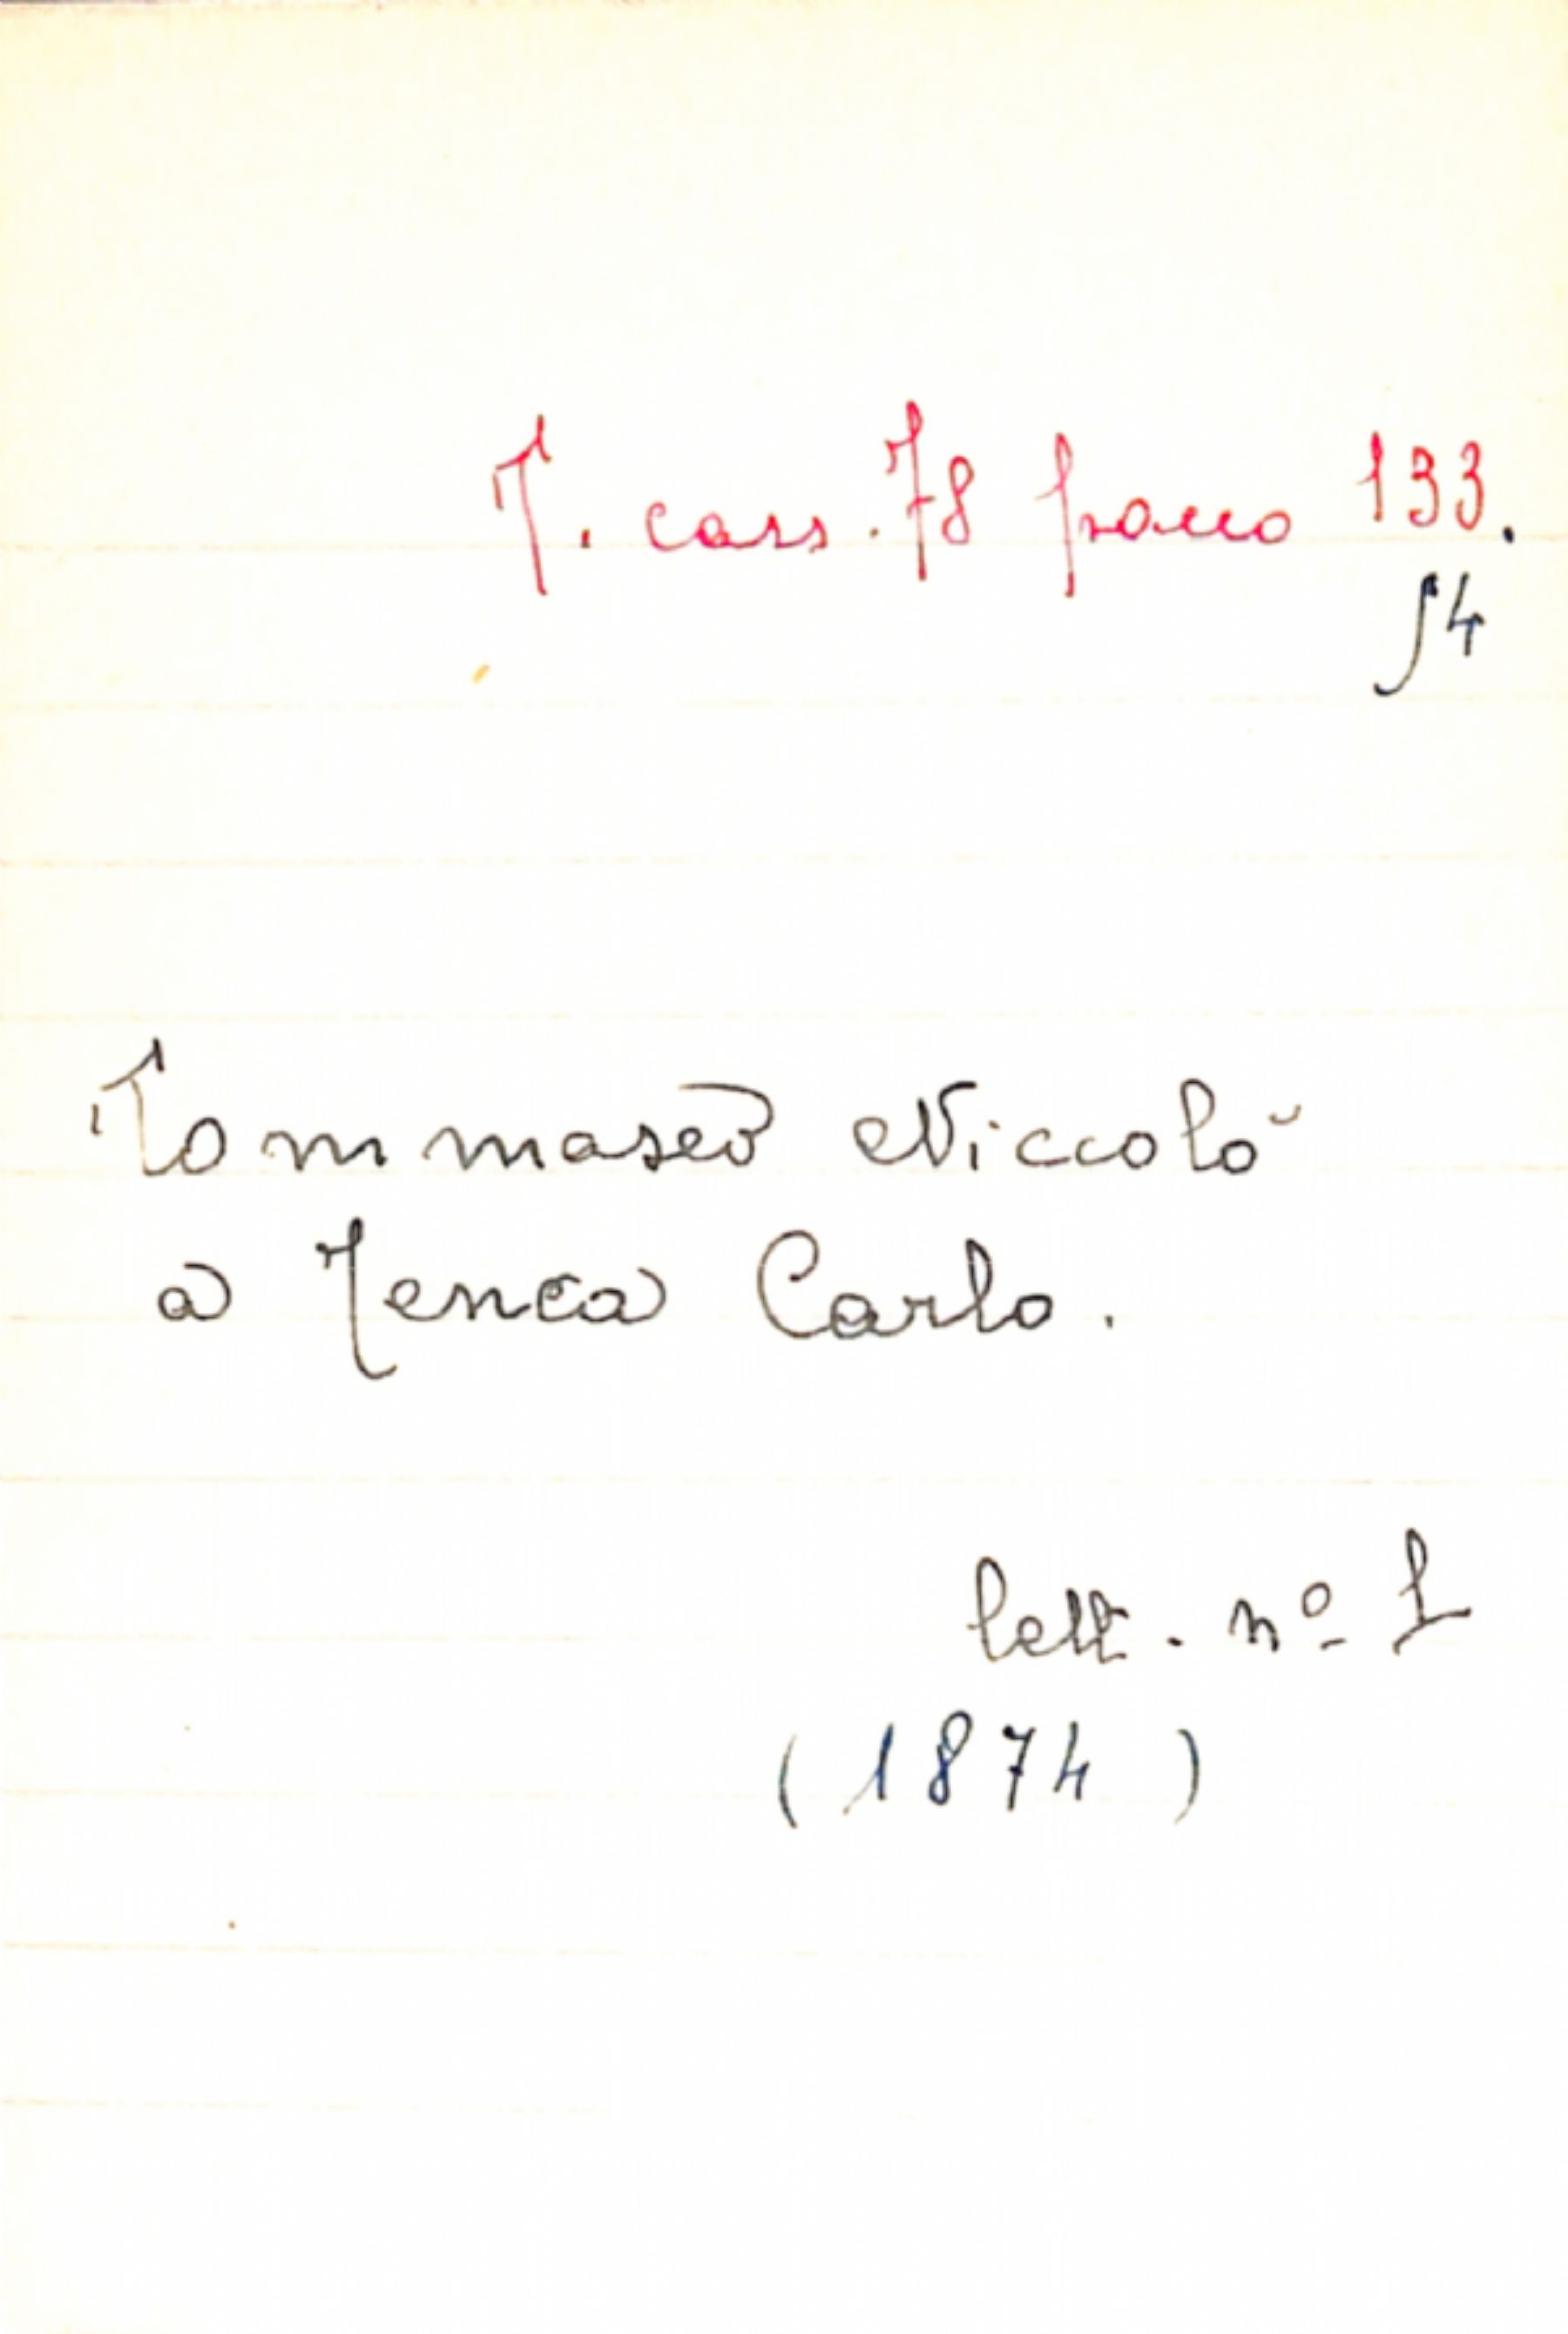 T. cass. 78 pacco 133.
4
Tommaseo Niccolò
a Tenca Carlo.
lett. nº 1
(1874)